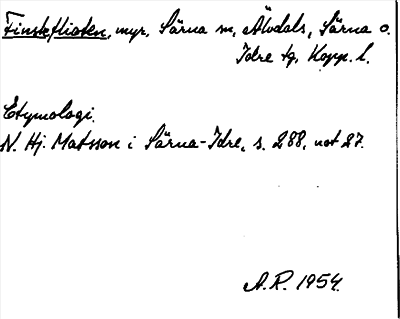 Finskflioten, myr, Särna sn, Älvdals, Särna o.
Idre tg, Kopp. l.
Etymologi.
N. Hj. Matsson i Särna-Idre, s. 288, not 27.
A.R. 1954.